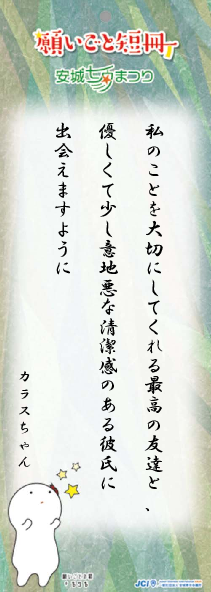 願いごと短冊
安城七夕まつり
私のことを大切にしてくれる最高の友達と、
優しくて少し意地悪な清潔感のある彼氏に
出会えますように
カラスちゃん
JCI